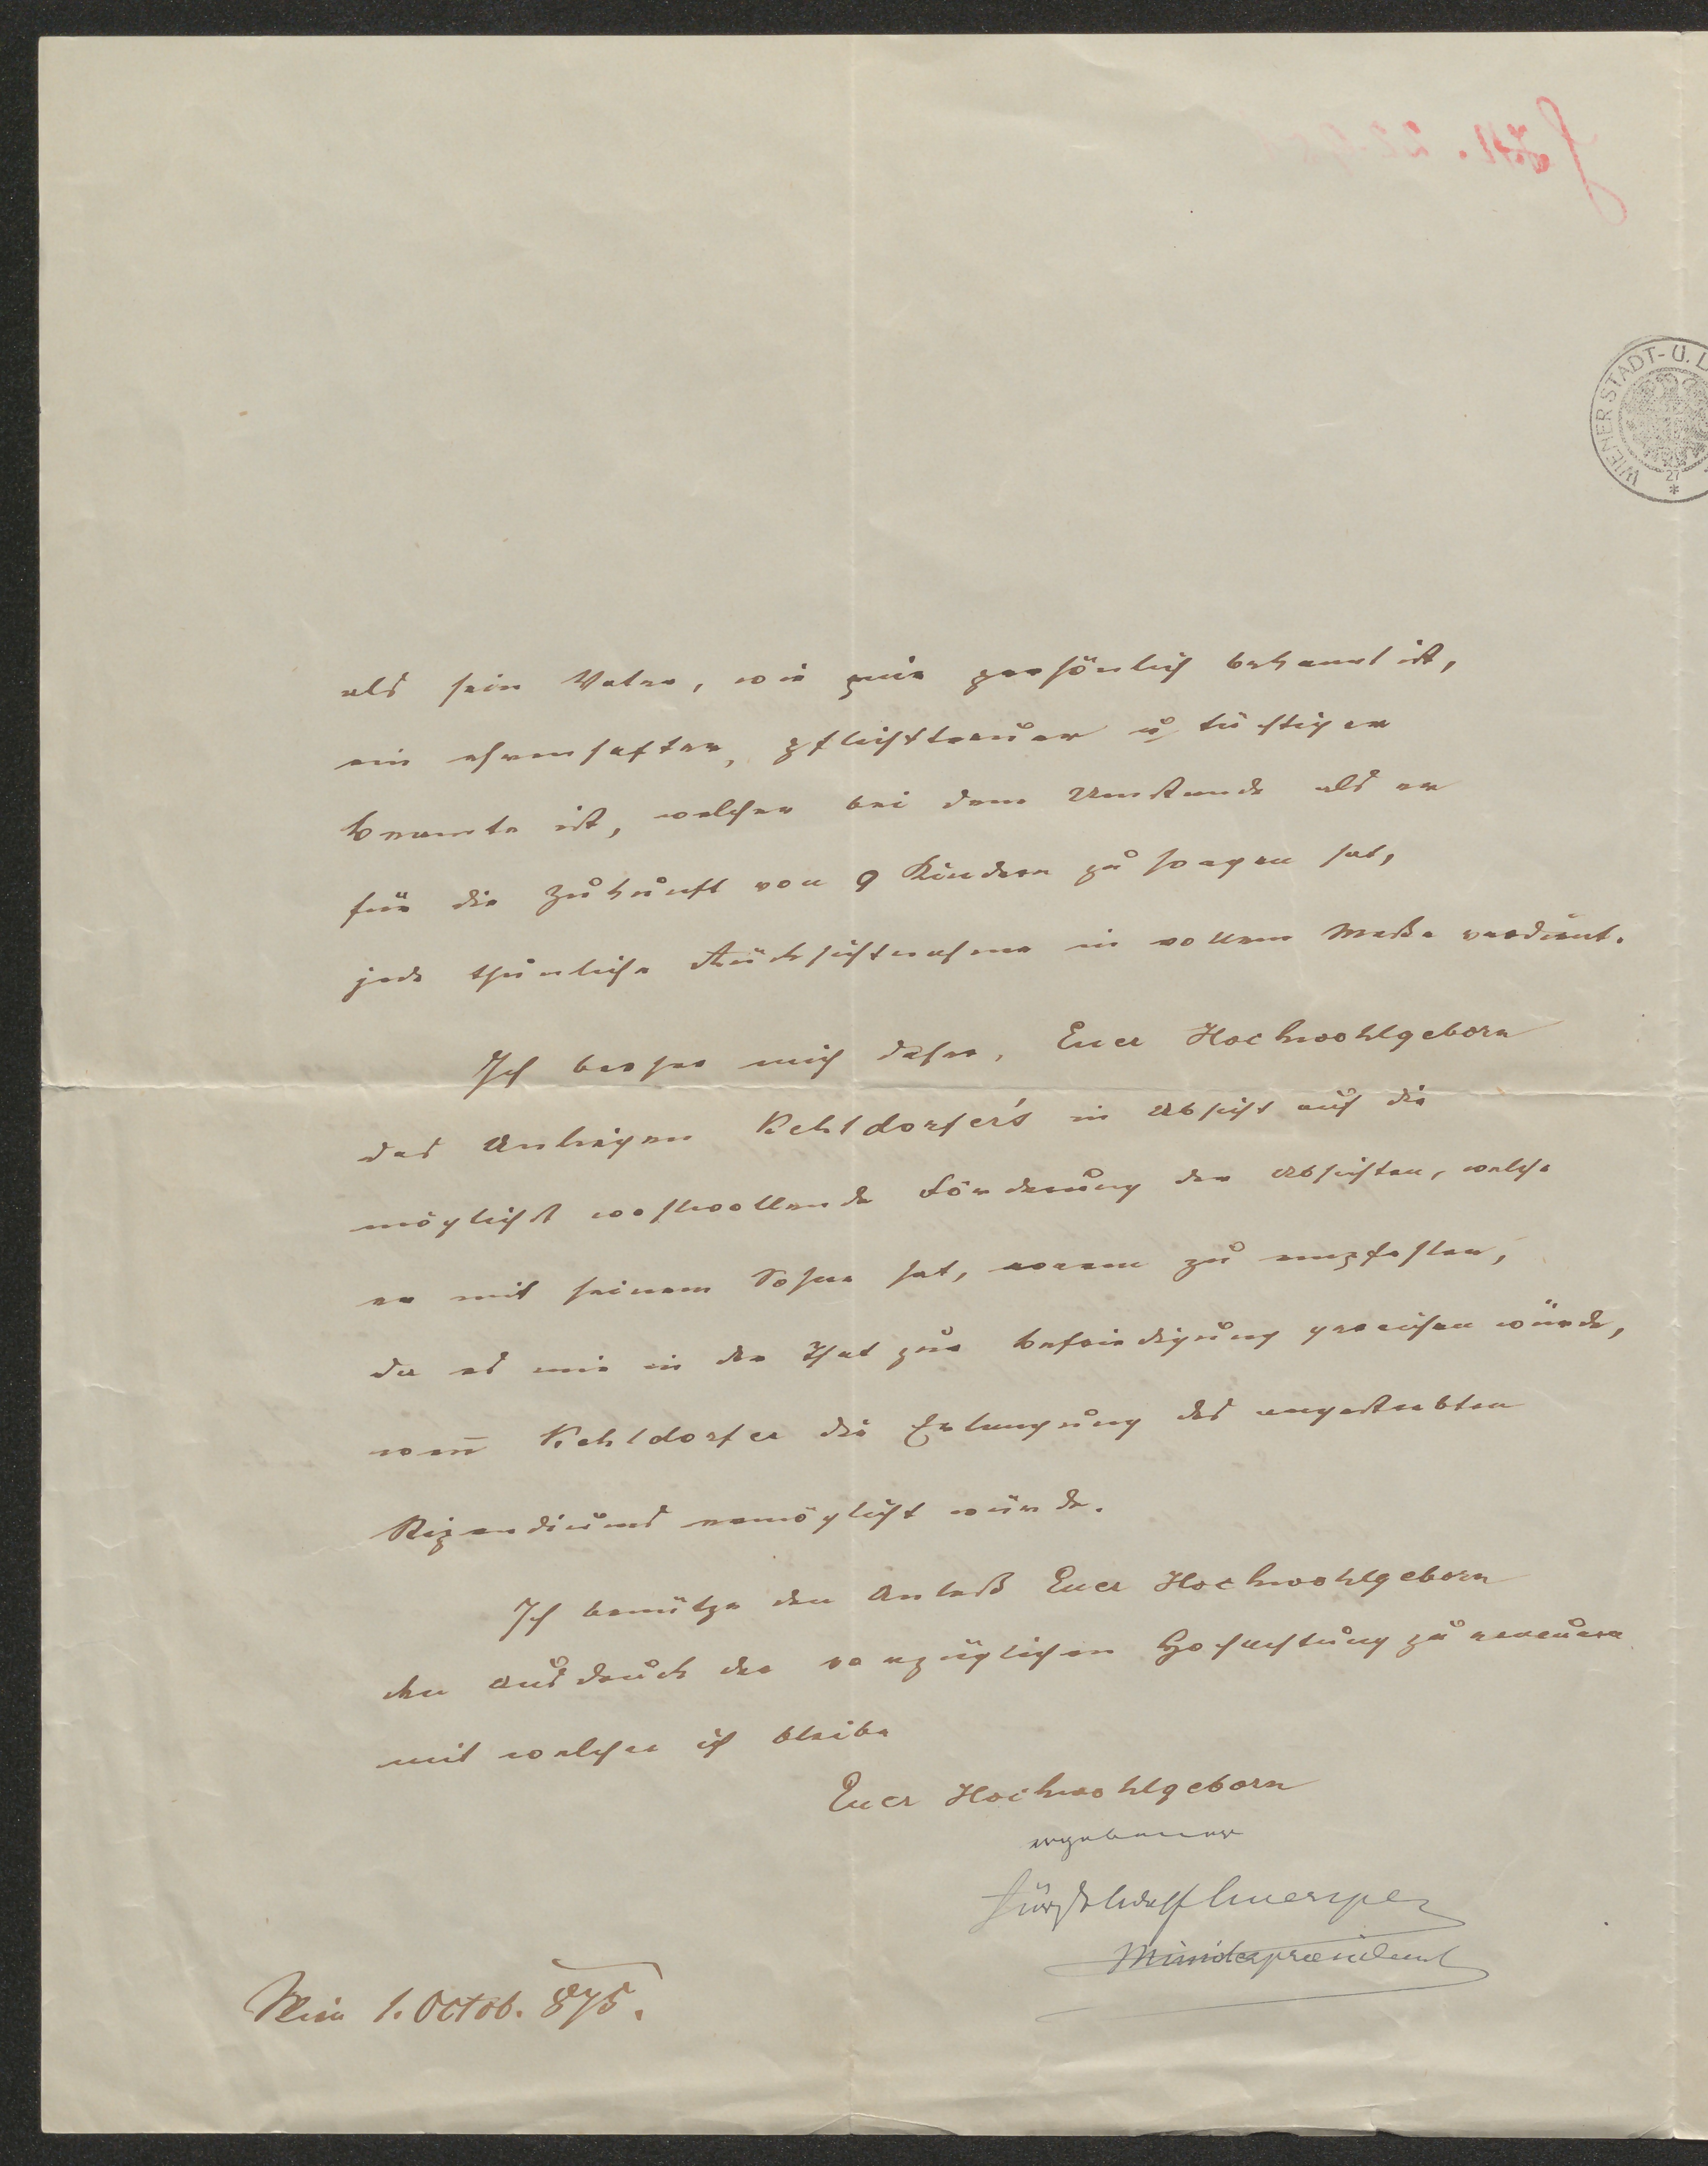 WIENER STADT- U. L
27
als sein Vater, wie mir persönlich bekannt ist,
ein ehrenhafter, pflichttreuer u. tüchtiger
Beamte ist, welcher bei dem Umstande als er
für die Zukunft von 9 Kindern zu sorgen hat,
jede thunliche Rücksichtnahme in vollem Maße verdient.
Ich beehre mich daher, Euer Hochwohlgeborn
das Anliegen Kehldorfer's in Absicht auf die
möglichst wohlwollende Förderung der Absichten, welche
er mit seinem Sohne hat, warm zu empfehlen,
da es mir in der That zur Befriedigung gereichen würde,
wen̄ Kehldorfer die Erlangung des angestrebten
Stipendiums ermöglicht würde.
Ich benütze den Anlaß Euer Hochwohlgeborn
den Ausdruck der vorzüglichen Hochachtung zu erneuern
mit welcher ich bleibe
Euer Hochwohlgeborn
ergebener
Fürst Adolf Auersperg
Ministerpraesident
Wien 1. Octob. 875.